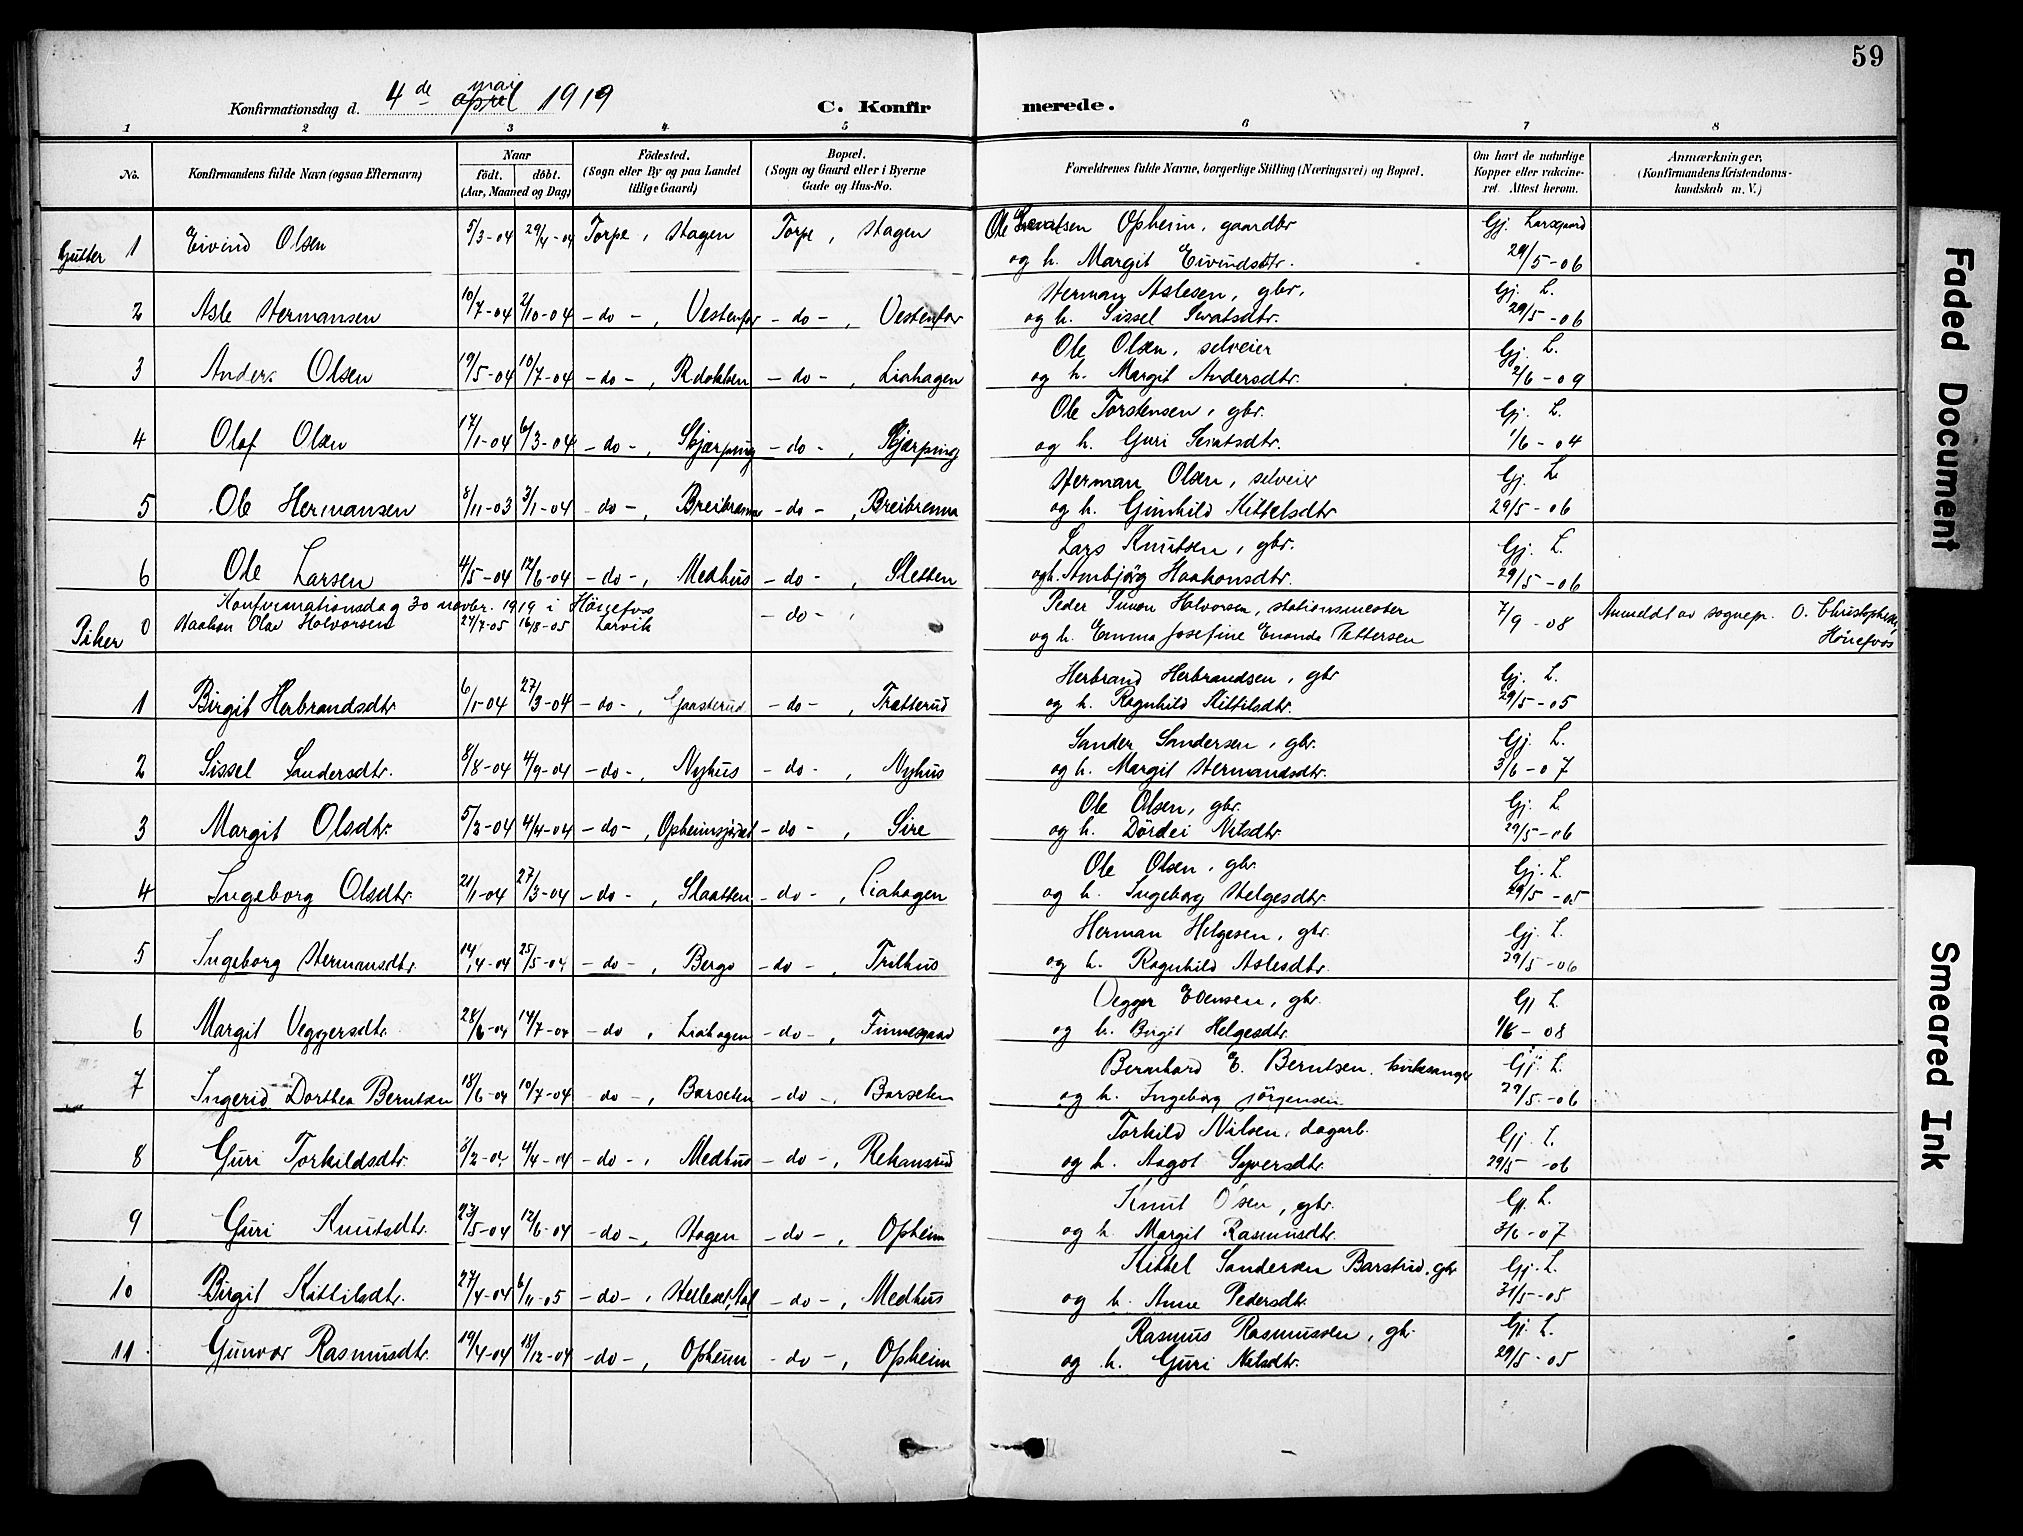 59
Konfirmationsdag d. 4de april mai 1919
C. Konfirmerede.
1 2 3 4 5 6 7 8
No. Konfirmandens fulde Navn (ogsaa Efternavn) Naar født. døbt. (Aar, Maaned og Dag) Fødested. (Sogn eller By og paa Landet tillige Gaard) Bopæl. (Sogn og Gaard eller i Byerne Gade og Hus-No. Forældrenes fulde Navne, borgerlige Stilling (Næringsvei) og Bopæl. Om havt de naturlige Kopper eller vakcineret. Attest herom. Anmærkninger, (Konfirmandens Kristendomskundskab m. V.)
Gutter 1 Eivind Olsen 5/3-04 29/4-04 Torpe, Hagen Torpe, Hagen Ole Opheim, gaardbr Gj. Larsgaard
og h. Margit Eivindsdtr. 29/5-06
2 Asle Hermansen 10/7-04 2/10-04 -do-, Vestenfor -do-, Vestenfor Herman Aslesen, gbr. Gj. L.
og h. Sissel Sevatsdtr. 29/5-06
3 Anders Olsen 19/5-04 10/7-04 -do-, Rdokken -do-, Liahagen Ole Olsen, selveier Gj. L.
og h. Margit Andersdtr. 2/6-09
4 Olaf Olsen 17/1-04 6/3-04 -do-, Skjærping -do-, Skjærping Ole Torstensen, gbr. Gj. L.
og h. Guri Sevatsdtr. 1/6-04
5 Ole Hermansen 8/11-03 3/1-04 -do-, Breibrenna -do-, Breibrenna Herman Olsen, selveier Gj. L
og h. Gunhild Kittelsdtr 29/5-06
6 Ole Larsen 4/5-04 12/6-04 -do-, Medhus -do-, Sletten Lars Knutsen, gbr. Gj. L.
og h. Ambjörg Haakonsdtr. 29/5-06
Konfirmationsdag 30 novbr. 1919 i Hönefoss
Piker 0 Haakon Olav Halvorsen 27/7-05 16/8-05 Larvik -do-, Peder Simon Halvorsen, stationsmester 7/9-08 Anmeldt av sognepr. O. Christophersen,
og h. Emma Josefine Enanda Pettersen Hönefoss
1 Birgit Herbrandsdtr 6/1-04 27/3-04 -do-, Gaasterud -do-, Trætterud Herbrand Herbrandsen, gbr Gj. L.
og h. Ragnhild Kittilsdtr. 29/5-05
2 Sissel Sandersdtr. 8/8-04 4/9-04 -do-, Nyhus -do-, Nyhus Sander Sandersen, gbr. Gj. L.
og h. Margit Hermandsdtr. 3/6-07
3 Margit Olsdtr. 5/3-04 4/4-04 -do-, Opheimsjordet -do-, Sire Ole Olsen, gbr. Gj. L
og h. Dördei Nilsdtr. 29/5-06
4 Ingeborg Olsdtr. 21/1-04 27/3-04 -do-, Slaatten -do-, Liahagen Ole Olsen, gbr. Gj. L.
og h. Ingeborg Helgesdtr. 29/5-05
5 Ingeborg Hermansdtr. 14/4-04 25/5-04 -do-, Bergo -do-, Trilhus Herman Helgesen, gbr. Gj. L.
og h. Ragnhild Aslesdtr. 29/5-06
6 Margit Veggersdtr. 28/6-04 17/7-04 -do, Liahagen -do-, Finnesgaard Vegger Evensen, gbr. Gj L.
og h. Birgit Helgesdtr. 1/6-08
7 Ingerid Dorthea Berntsen 18/6-04 10/7-04 -do-, Barseten -do-, Barseten Bernhard E. Berntsen, kirkesanger Gj. L.
og h. Ingeborg Jörgensen 29/5-06
8 Guri Torkildsdtr. 8/2-04 4/4-04 -do-, Medhus -do-, Rekansrud Torkild Nilsen, dagarb. Gj. L.
og h. Aagot Syversdtr. 29/5-06
9 Guri Knutsdtr. 23/5-04 12/6-04 -do-, Hagen -do-, Opheim Knut Olsen, gbr. Gj. L.
og h. Margit Rasmusdtr. 3/6-07
10 Birgit Kittilsdtr. 27/4-04 6/11-05 -do-, Aal -do-, Medhus Kittel Sandersen Barstrud, gbr Gj. L.
og h. Anne Pedersdtr. 31/5-05
11 Gunvor Rasmusdtr. 19/4-04 18/12-04 -do-, Opheim -do-, Opheim Rasmus Rasmussen, gbr. Gj. L.
og h. Guri Nilsdtr. 29/5-05
Faded Document
Smeared Ink